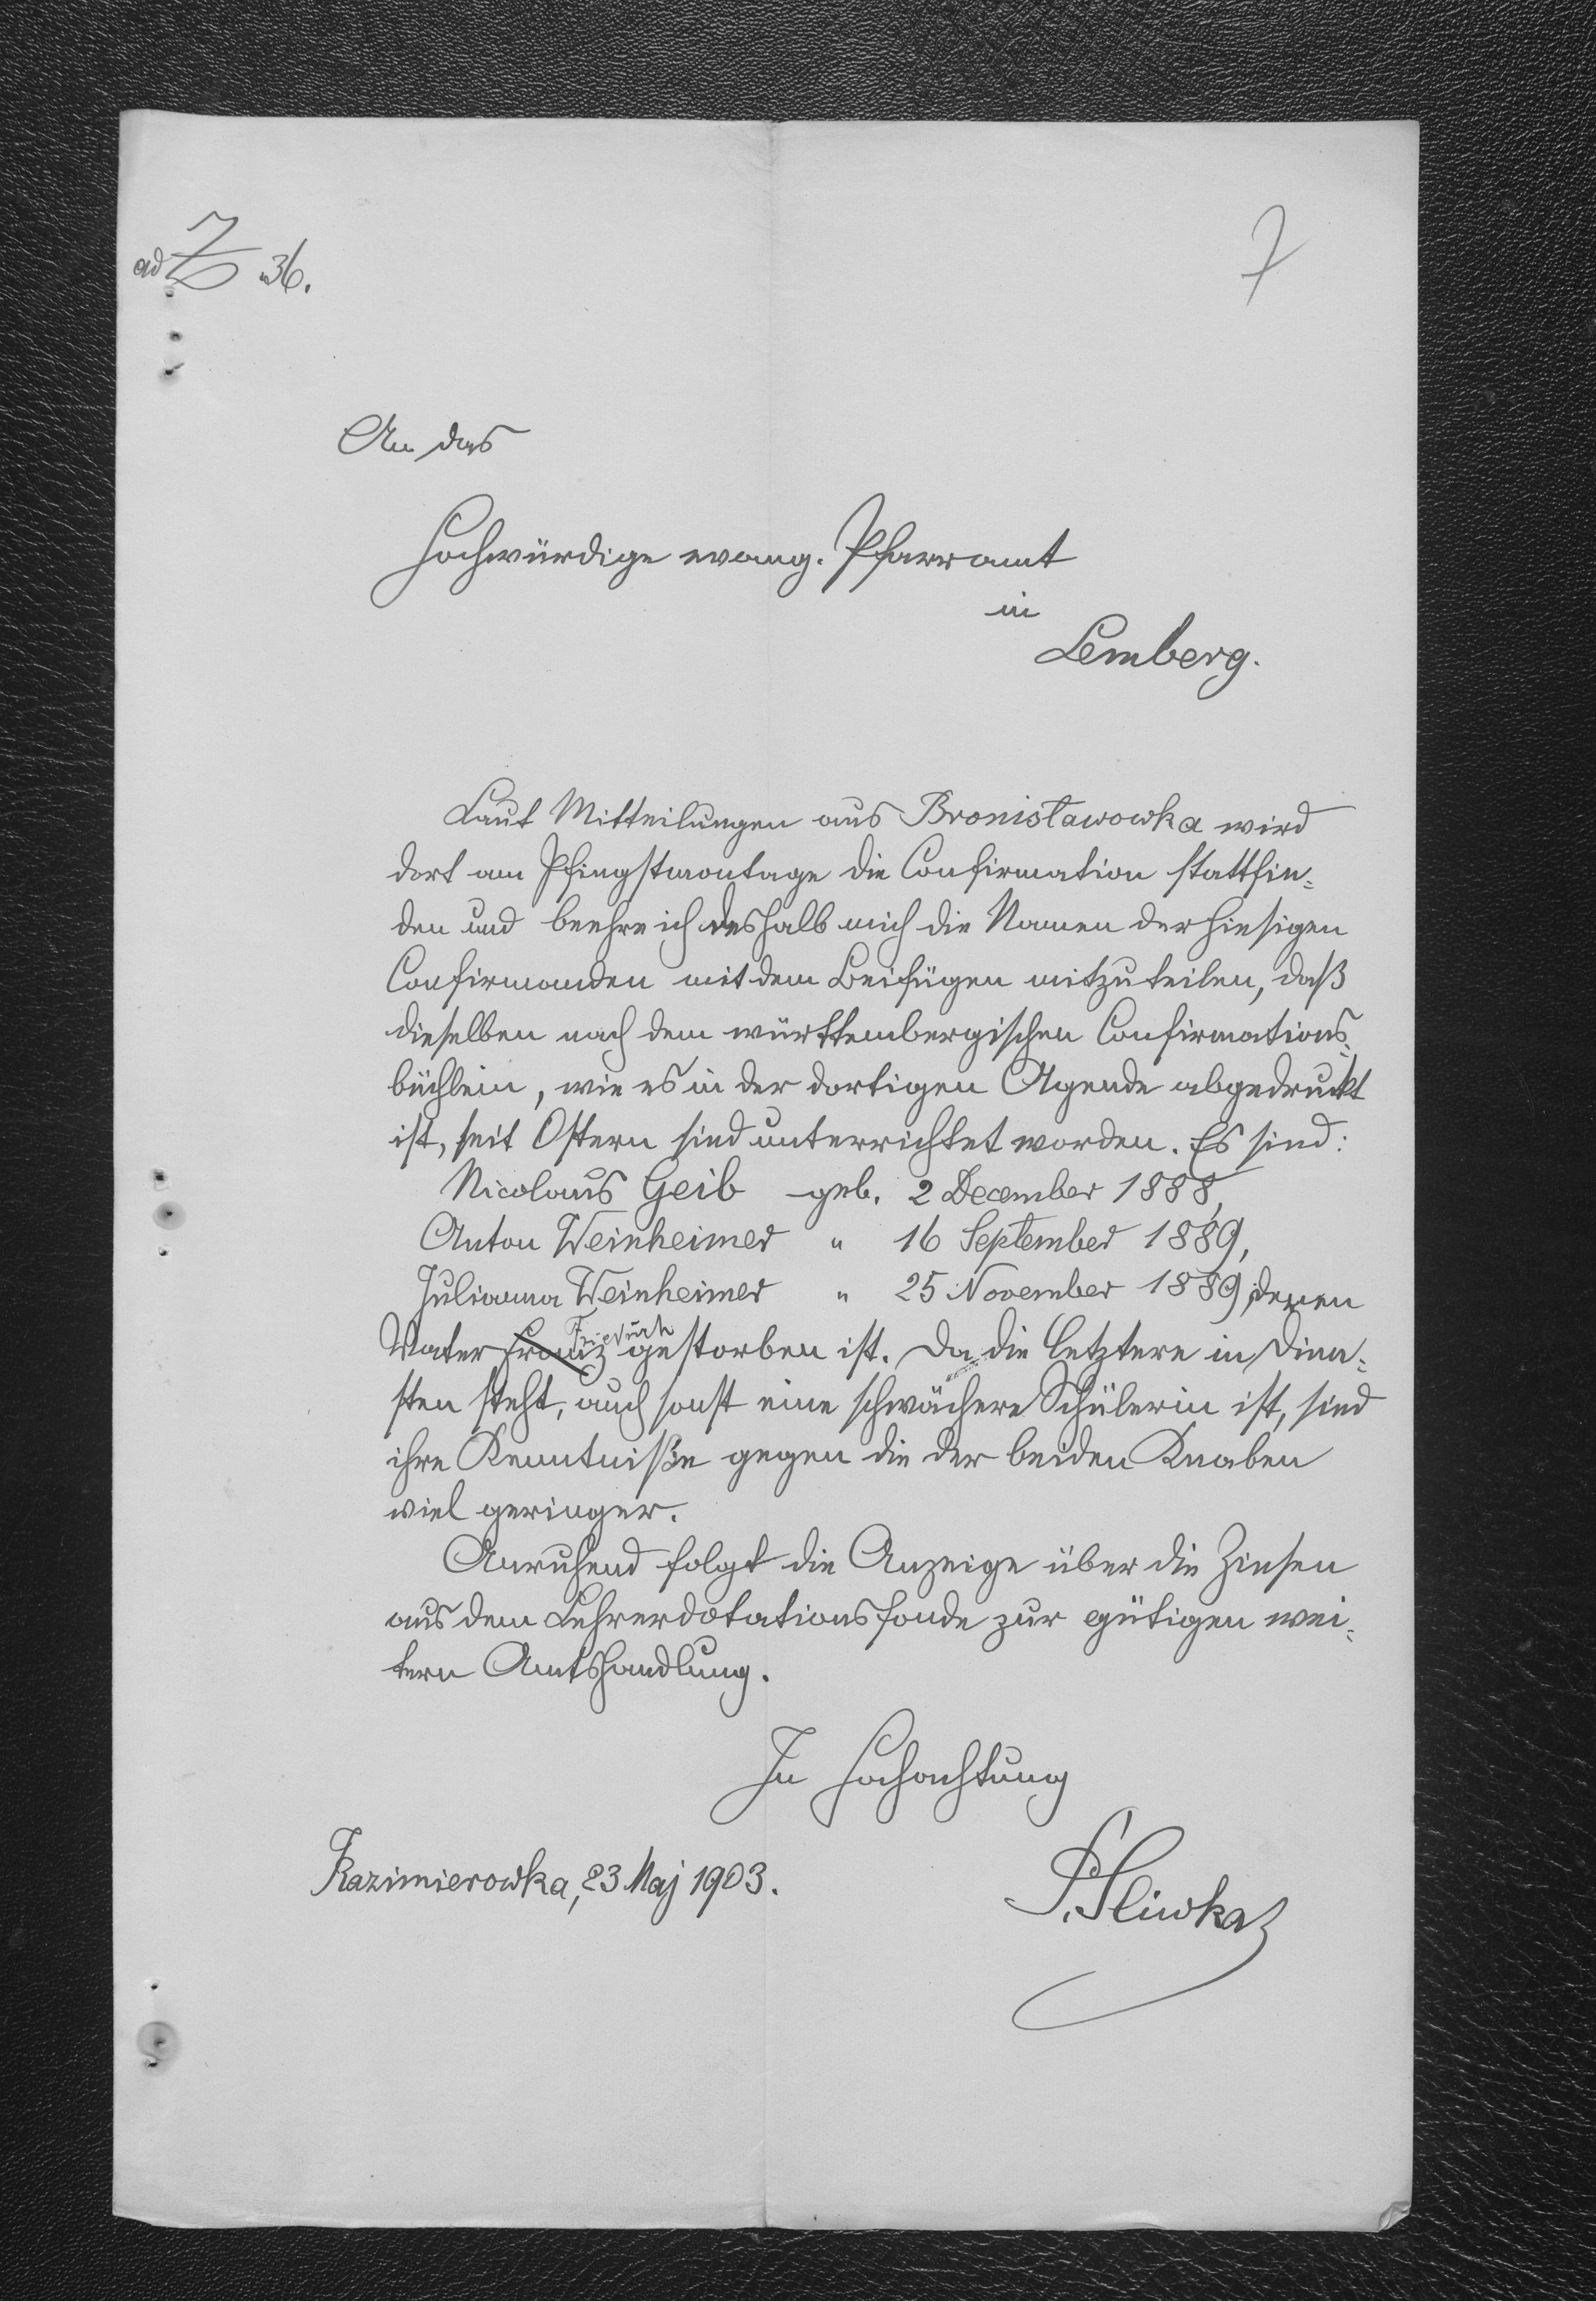 ad Z 36.
7
An das
Hochwürdige evang. Pfarramt
in
Lemberg.
Laut Mitteilungen aus Bronisławowka wird
dort am Pfingstmontage die Confirmation stattfin=
den und beehre ich deshalb mich die Namen der hiesigen
Confirmanden mit dem Beifügen mitzuteilen, daß
dieselben nach dem württembergischen Confirmations=
büchlein, wie es in der dortigen Agende abgedruckt
ist, seit Ostern sind unterrichtet worden. Es sind:
Nicolaus Geib geb. 2 December 1888,
Anton Weinheimer " 16 September 1889,
Julianna Weinheimer " 25 November 1889, deren
Friedrich
Vater Franz gestorben ist. Da die letztere in Dien=
sten steht, auch sonst eine schwächere Schülerin ist, sind
ihre Kenntniße gegen die der beiden Knaben
viel geringer.
Anruhend folgt die Anzeige über die Zinsen
aus dem Lehrerdotationsfonde zur gütigen wei=
tern Amtshandlung.
In Hochachtung
Kazimierowka, 23 Maj 1903.
P. Sliwka